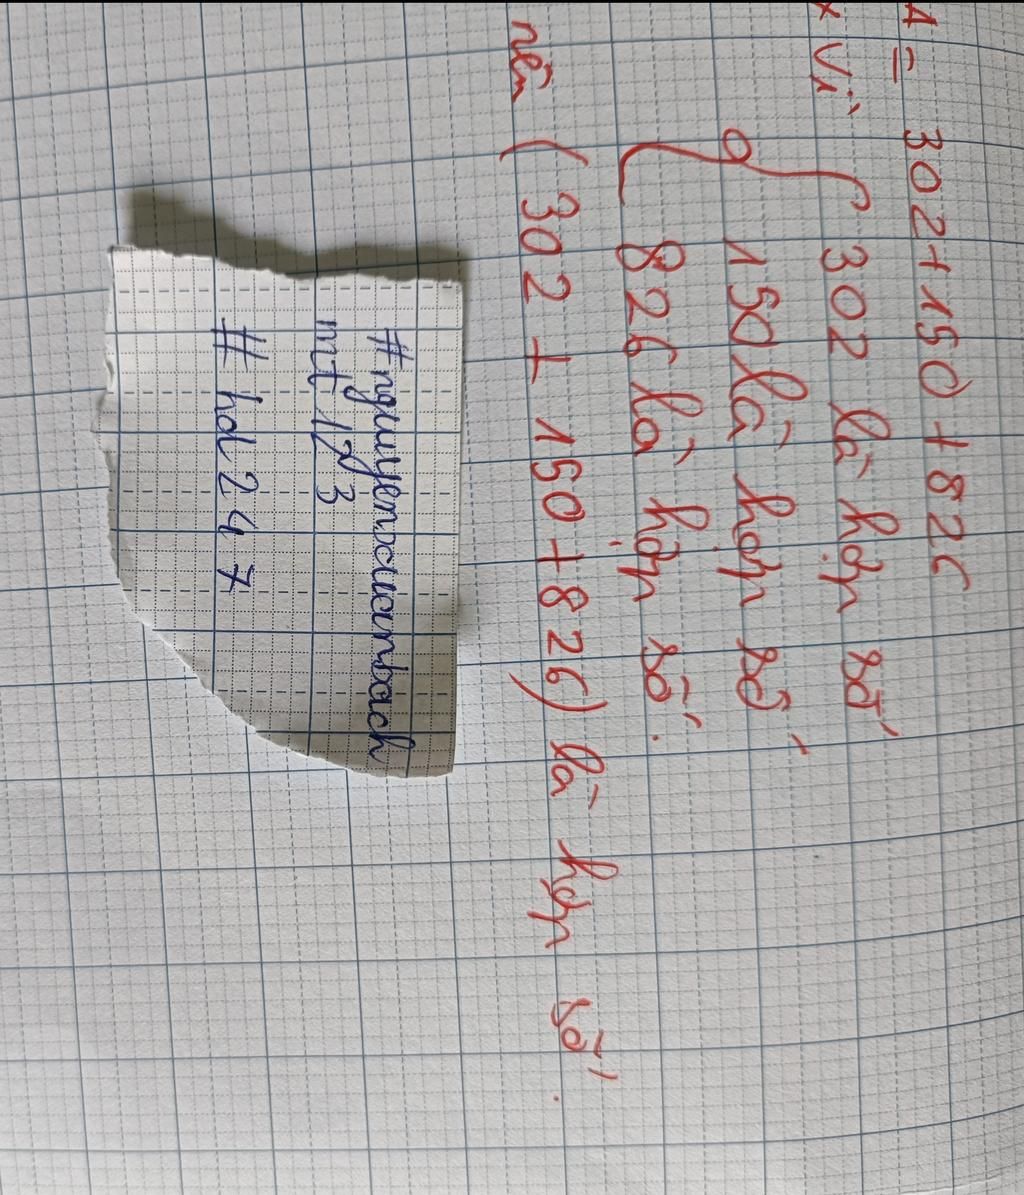 A = 302+150+826
* Vì 302 là hợp số
150 là hợp số
826 là hợp số.
nên (302 + 150+826) là hợp số.
#nguyenxuanbach
mt 123
# hd 247